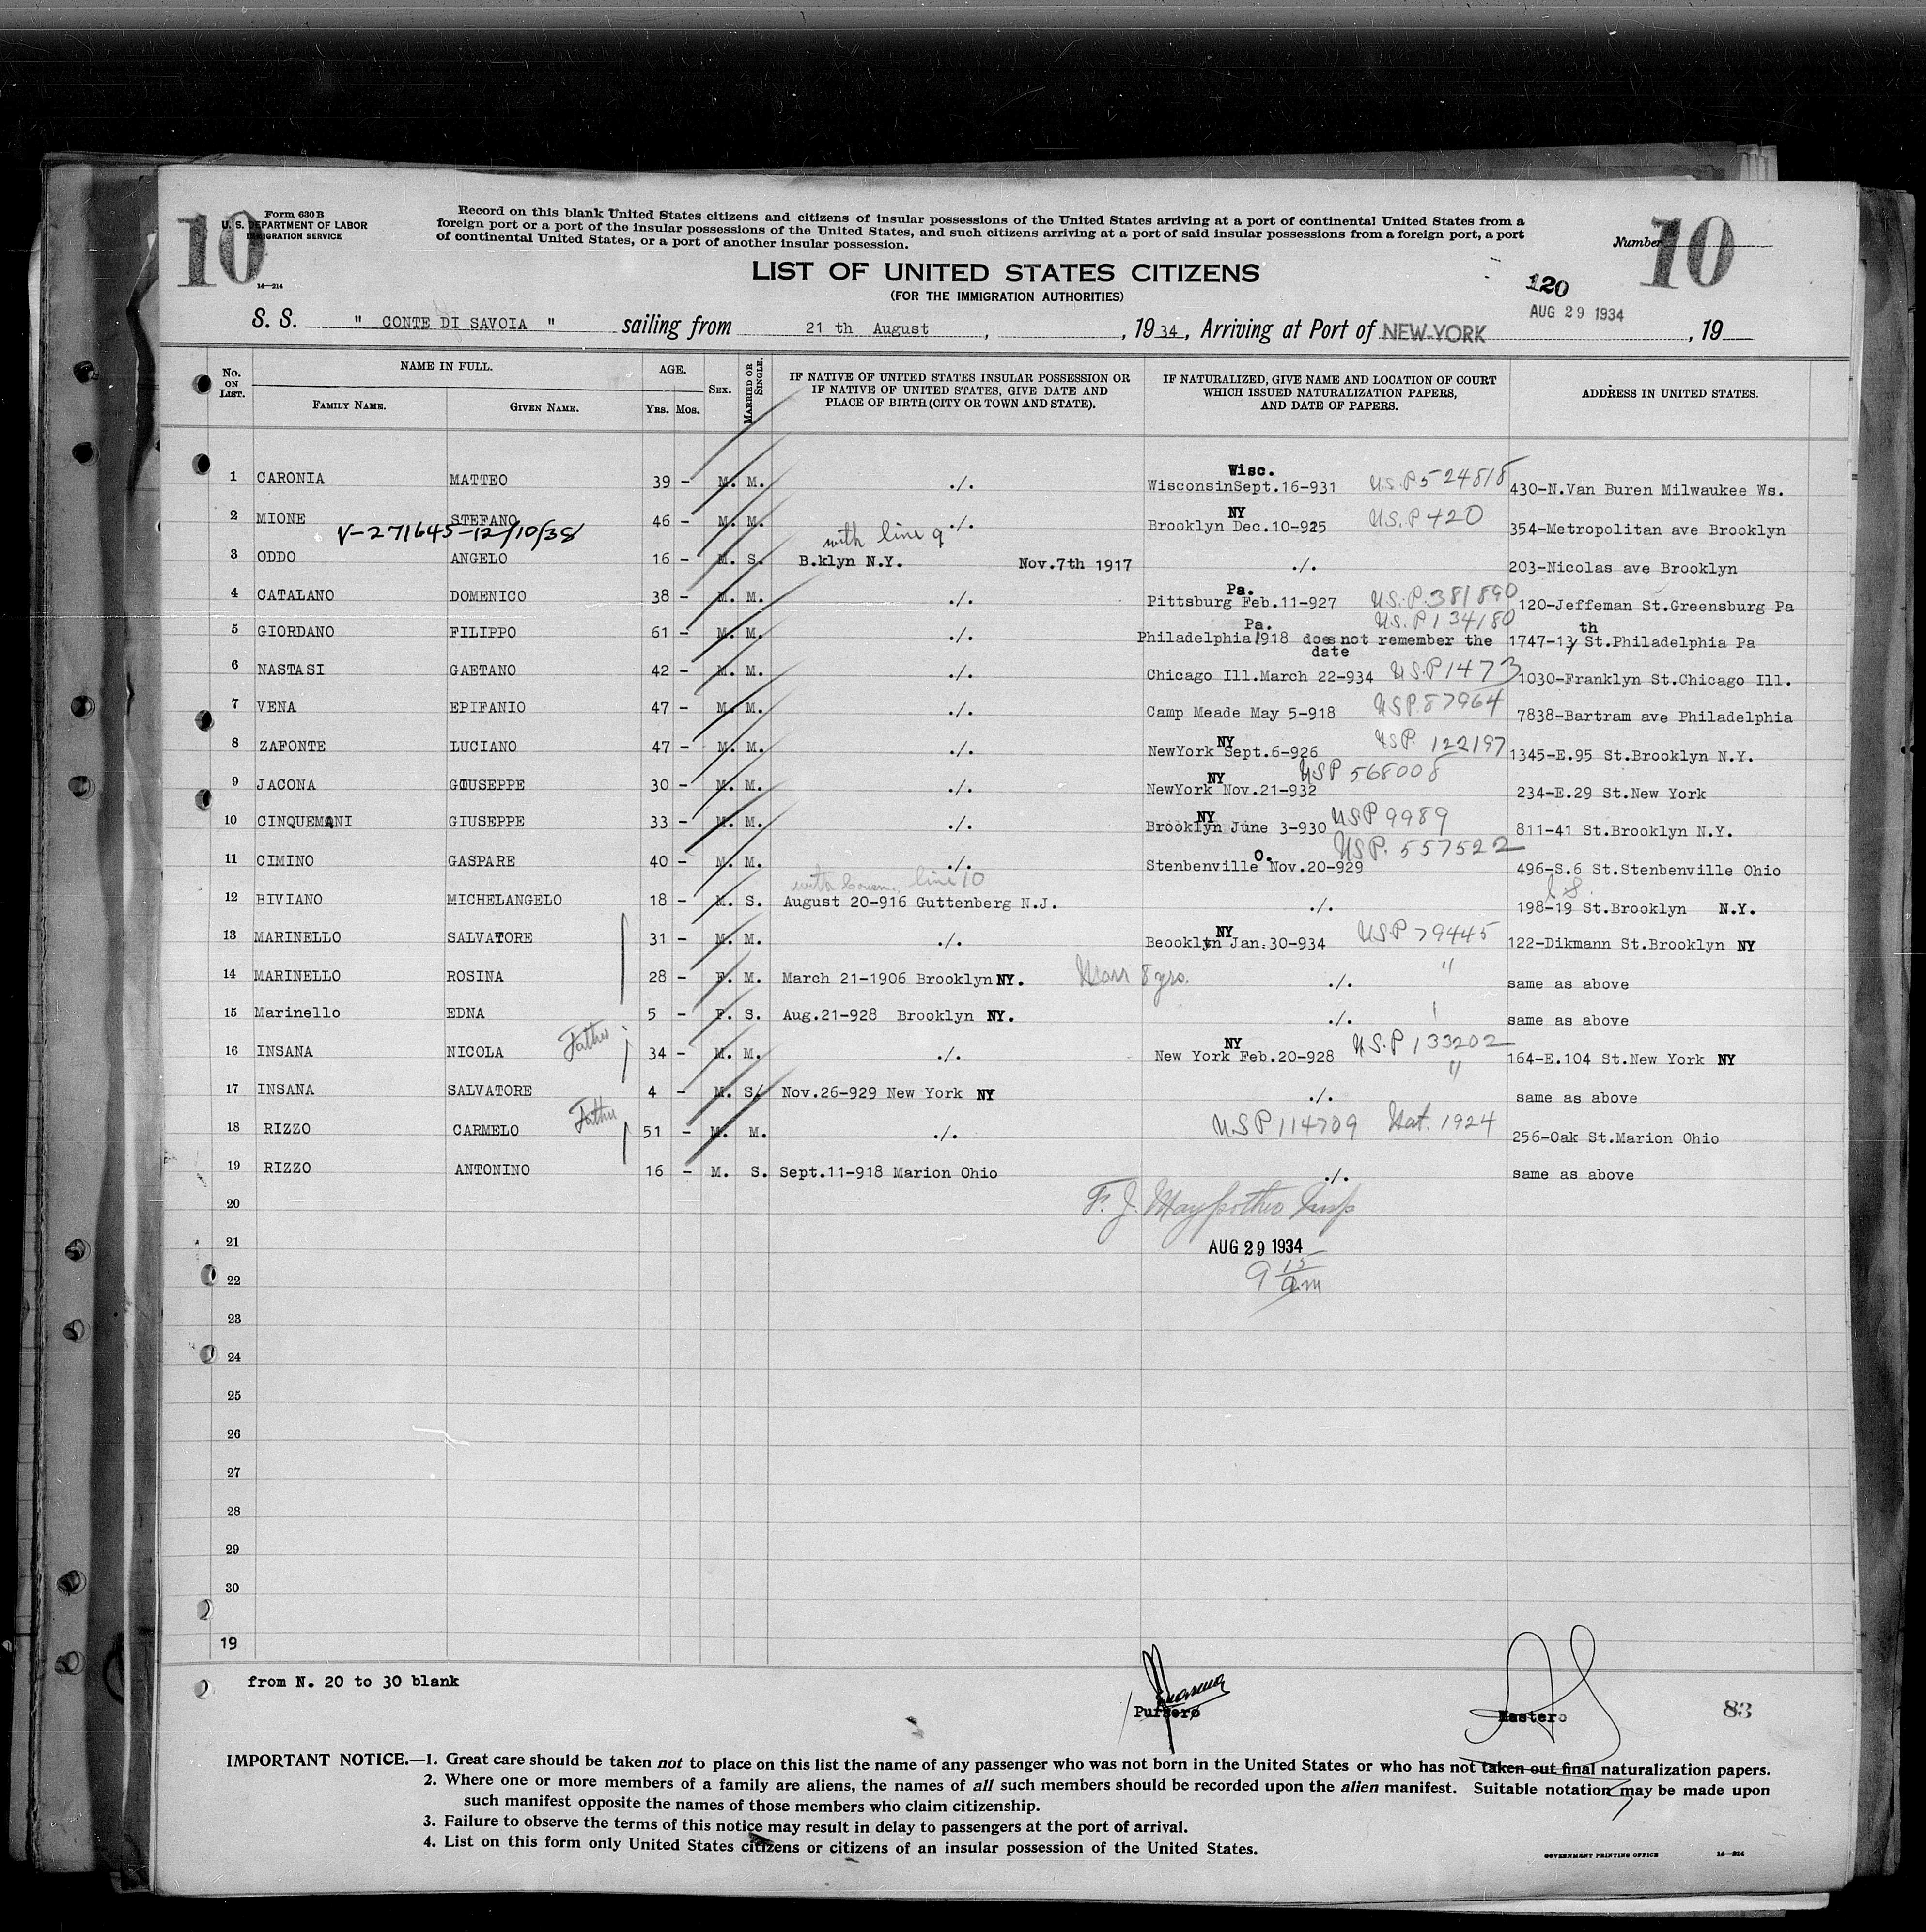 10
Form 630 B
U. S. DEPARTMENT OF LABOR
IMMIGRATION SERVICE
14—214
Record on this blank United States citizens and citizens of insular possessions of the United States arriving at a port of continental United States from a
foreign port or a port of the insular possessions of the United States, and such citizens arriving at a port of said insular possessions from a foreign port, a port
of continental United States, or a port of another insular possession.
Number 10
LIST OF UNITED STATES CITIZENS
(FOR THE IMMIGRATION AUTHORITIES)
120
AUG 29 1934
S. S. " CONTE DI SAVOIA " sailing from 21 th August , , 19 34 , Arriving at Port of NEW-YORK , 19
No. ON LIST. NAME IN FULL. FAMILY NAME. GIVEN NAME. AGE. YRS. MOS. SEX. MARRIED OR SINGLE. IF NATIVE OF UNITED STATES INSULAR POSSESSION OR IF NATIVE OF UNITED STATES, GIVE DATE AND PLACE OF BIRTH (CITY OR TOWN AND STATE). IF NATURALIZED, GIVE NAME AND LOCATION OF COURT WHICH ISSUED NATURALIZATION PAPERS, AND DATE OF PAPERS. ADDRESS IN UNITED STATES.
Wisc.
1 CARONIA MATTEO 39 - M. M. ./. WisconsinSept.16-931 U.S.P 524818 430-N.Van Buren Milwaukee Ws.
NY
2 MIONE STEFANO 46 - M. M. ./. Brooklyn Dec.10-925 U.S.P 420 354-Metropolitan ave Brooklyn
V-271645-12/10/38 with line 9
3 ODDO ANGELO 16 - M. S. B.klyn N.Y. Nov.7th 1917 ./. 203-Nicolas ave Brooklyn
Pa.
4 CATALANO DOMENICO 38 - M. M. ./. Pittsburg Feb.11-927 U.S.P.381890 120-Jeffeman St.Greensburg Pa
Pa. U.S.P 134180 th
5 GIORDANO FILIPPO 61 - M. M. ./. Philadelphia 1918 does not remember the 1747-13 St.Philadelphia Pa
date
6 NASTASI GAETANO 42 - M. M. ./. Chicago Ill.March 22-934 U.S.P 1473 1030-Franklyn St.Chicago Ill.
7 VENA EPIFANIO 47 - M. M. ./. Camp Meade May 5-918 USP.87964 7838-Bartram ave Philadelphia
NY
8 ZAFONTE LUCIANO 47 - M. M. ./. NewYork Sept.6-926 USP. 122197 1345-E.95 St.Brooklyn N.Y.
NY USP 568008
9 JACONA GIUSEPPE 30 - M. M. ./. NewYork Nov.21-932 234-E.29 St.New York
NY
10 CINQUEMANI GIUSEPPE 33 - M. M. ./. Brooklyn June 3-930 USP 9989 811-41 St.Brooklyn N.Y.
O. USP. 557522
11 CIMINO GASPARE 40 - M. M. ./. Stenbenville Nov.20-929 496-S.6 St.Stenbenville Ohio
with line 10
12 BIVIANO MICHELANGELO 18 - M. S. August 20-916 Guttenberg N.J. ./. 198-19 St.Brooklyn N.Y.
NY
13 MARINELLO SALVATORE 31 - M. M. ./. Beooklyn Jan.30-934 USP 79445 122-Dikmann St.Brooklyn NY
14 MARINELLO ROSINA 28 - F. M. March 21-1906 Brooklyn NY. Marr 8 yrs. ./. " same as above
15 Marinello EDNA 5 - F. S. Aug.21-928 Brooklyn NY. ./. same as above
NY
16 INSANA NICOLA Father 34 - M. M. ./. New York Feb.20-928 U.S.P 133202 164-E.104 St.New York NY
17 INSANA SALVATORE 4 - M. S. Nov.26-929 New York NY ./. " same as above
18 RIZZO CARMELO Father 51 - M. M. ./. U.S.P 114709 Nat. 1924 256-Oak St.Marion Ohio
19 RIZZO ANTONINO 16 - M. S. Sept.11-918 Marion Ohio ./. same as above
20 F. J. Insp
21 AUG 29 1934
22 9 15 am
23
24
25
26
27
28
29
30
19
from N. 20 to 30 blank
Purser
Master
83
IMPORTANT NOTICE.—1. Great care should be taken not to place on this list the name of any passenger who was not born in the United States or who has not taken out final naturalization papers.
2. Where one or more members of a family are aliens, the names of all such members should be recorded upon the alien manifest. Suitable notation may be made upon
such manifest opposite the names of those members who claim citizenship.
3. Failure to observe the terms of this notice may result in delay to passengers at the port of arrival.
4. List on this form only United States citizens or citizens of an insular possession of the United States.
GOVERNMENT PRINTING OFFICE 14—214